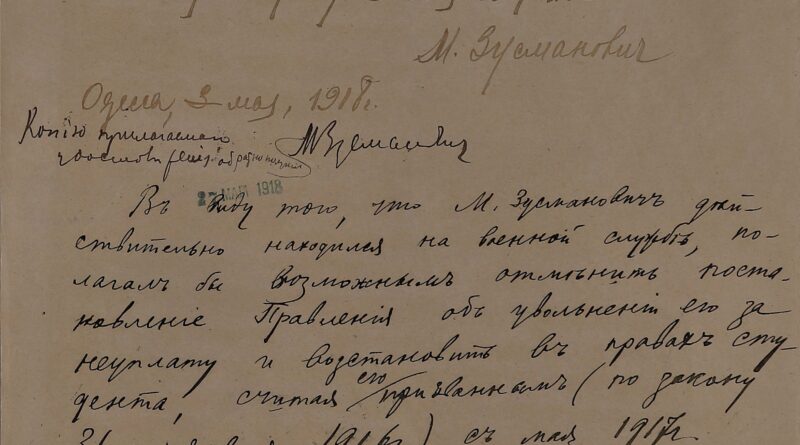 М. Зусманович
Одесса, 3 мая, 1918 г.
Копію прилагаемаго
удостоверенія обратно получил
МЗусманович
27 МАЙ 1918
Въ виду того, что М. Зусмановичъ дѣй-
ствительно находился на военной службѣ, по-
лагалъ бы возможнымъ отмѣнить поста-
новленіе Правленія объ увольненіи его за
неуплату и возстановить въ правахъ сту-
дента, считая его призваннымъ (по закону
1916 г.) съ мая 1917 г.